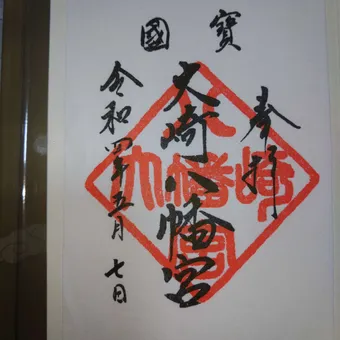 國寶
奉拝
大崎八幡宮
令和四年五月七日
大崎八幡宮